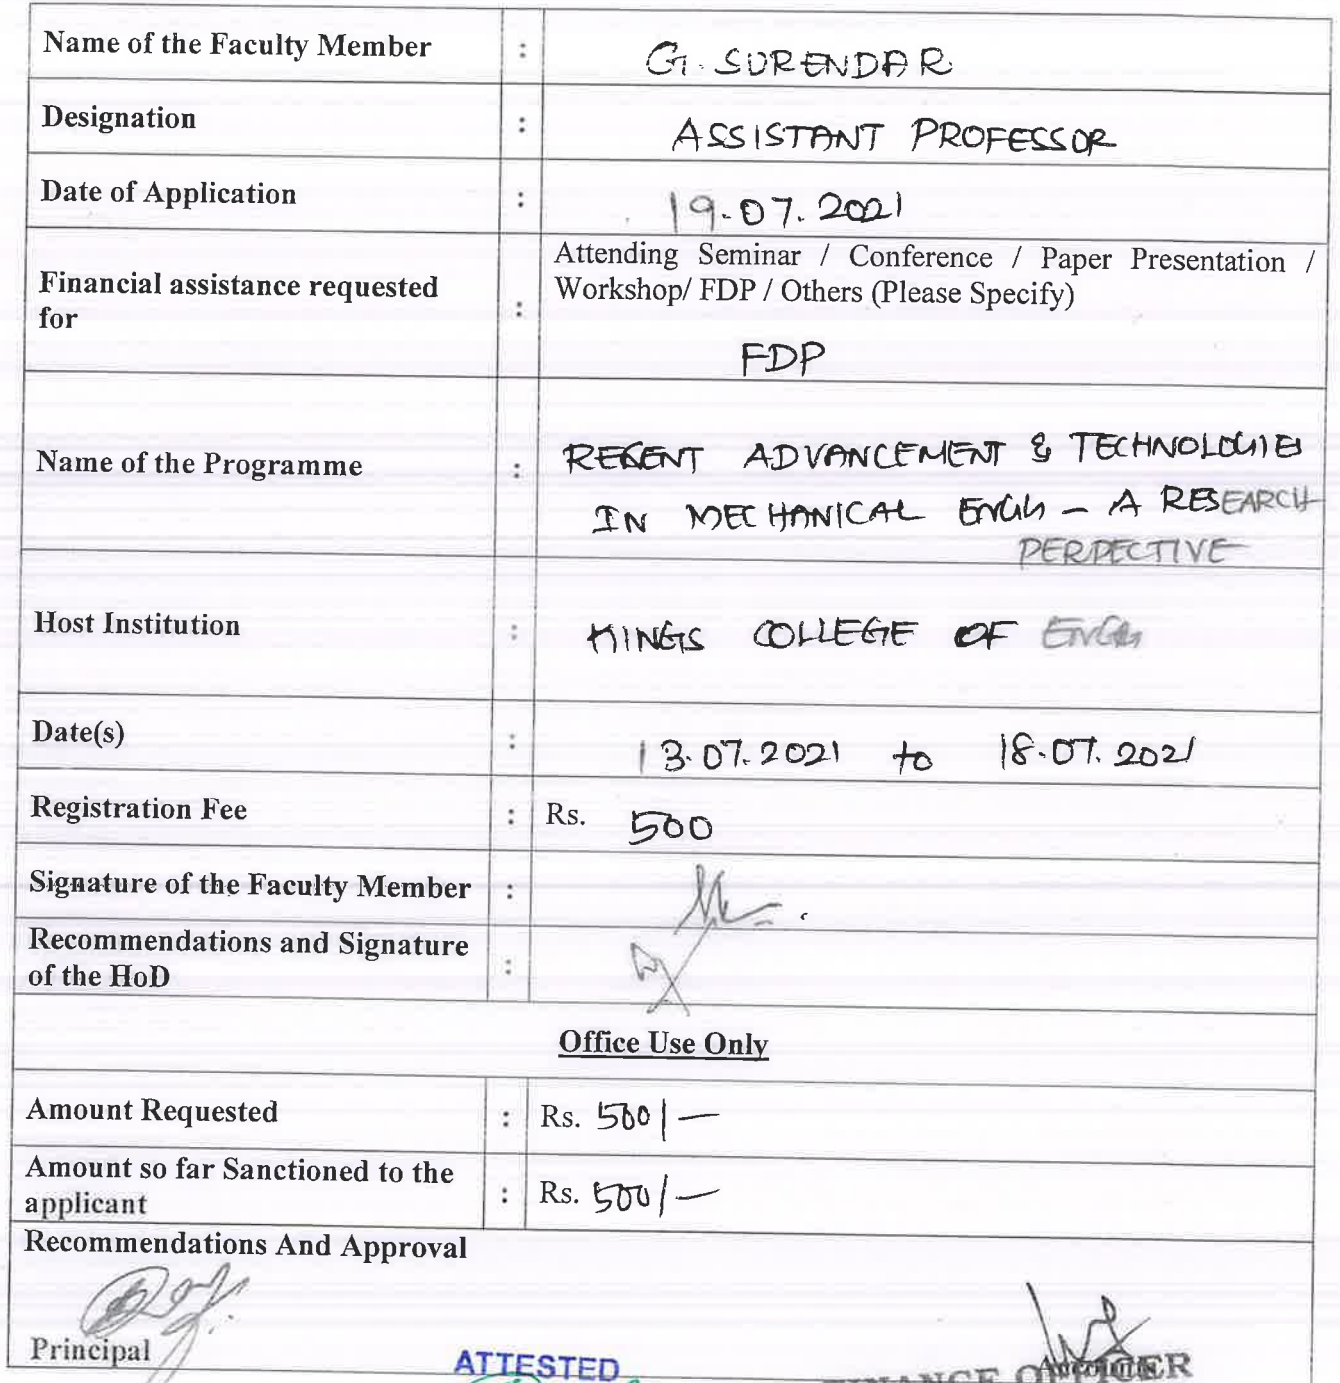 Name of the Faculty Member : G. SURENDAR
Designation : ASSISTANT PROFESSOR
Date of Application : 19.07.2021
Attending Seminar / Conference / Paper Presentation /
Financial assistance requested : Workshop/ FDP / Others (Please Specify)
for
FDP
Name of the Programme : RECENT ADVANCEMENT & TECHNOLOGIES
IN MECHANICAL ENGG – A RESEARCH
PERPECTIVE
Host Institution : KINGS COLLEGE OF ENGG
Date(s) : 13.07.2021 to 18.07.2021
Registration Fee : Rs. 500
Signature of the Faculty Member :
Recommendations and Signature
of the HoD :
Office Use Only
Amount Requested : Rs. 500/—
Amount so far Sanctioned to the
applicant : Rs. 500/—
Recommendations And Approval
Principal
ATTESTED
FINANCE OFFICER